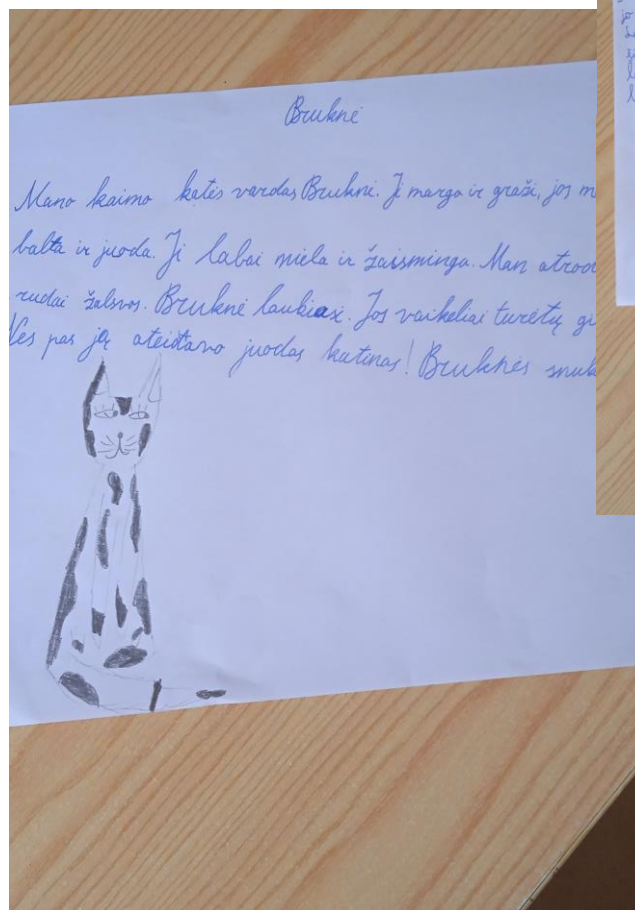 Bruknė
Mano kaimo katės vardas Bruknė. Ji marga ir graži, jos
balta ir juoda. Ji labai miela ir žaisminga. Man
rudai žalsvos. Bruknė laukiasi. Jos vaikeliai turėtų
Nes pas ją ateidavo juodas katinas! Bruknės